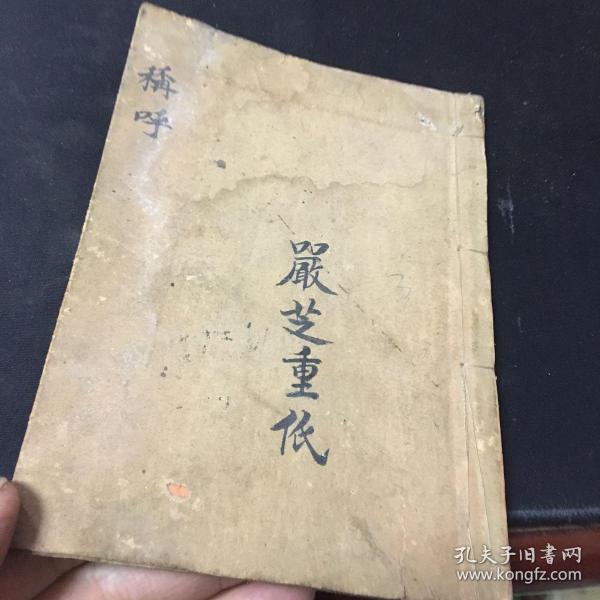 稱呼
嚴芝重
孔夫子旧书网
www.kongfz.com